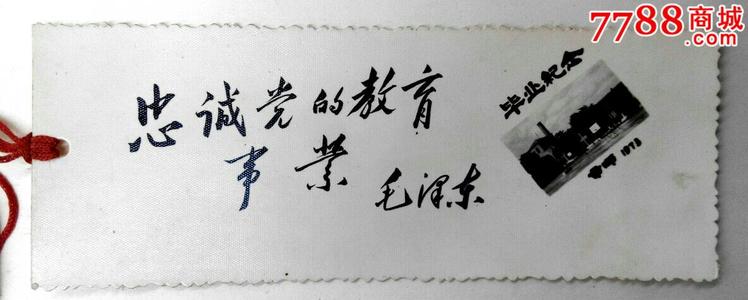 忠诚党的教育
事業
毛泽东
毕业纪念
1973
7788商城
.com